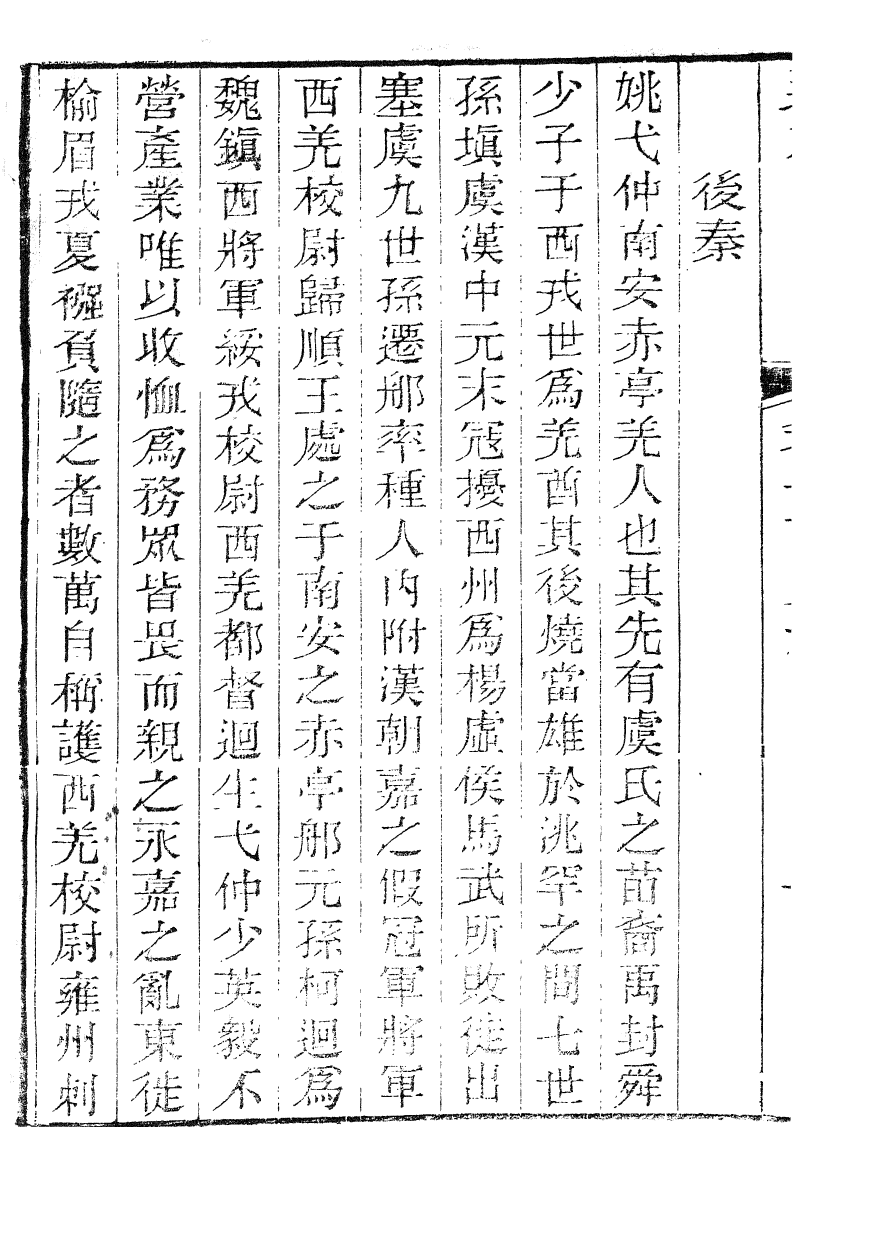 後秦
姚弋仲南安赤亭羌人也其先有虞氏之苗裔禹封舜
少子于西戎世爲羌酋其後燒當雄於洮罕之間七世
孫塡虞漢中元末寇擾西州爲楊虛侯馬武所敗徙出
塞虞九世孫遷那率種人內附漢朝嘉之假冠軍將軍
西羌校尉歸順王處之于南安之赤亭那元孫柯迴爲
魏鎭西將軍綏戎校尉西羌都督迴生弋仲少英毅不
營產業唯以收恤爲務眾皆畏而親之永嘉之亂東徙
榆眉戎夏襁負隨之者數萬自稱護西羌校尉雍州刺